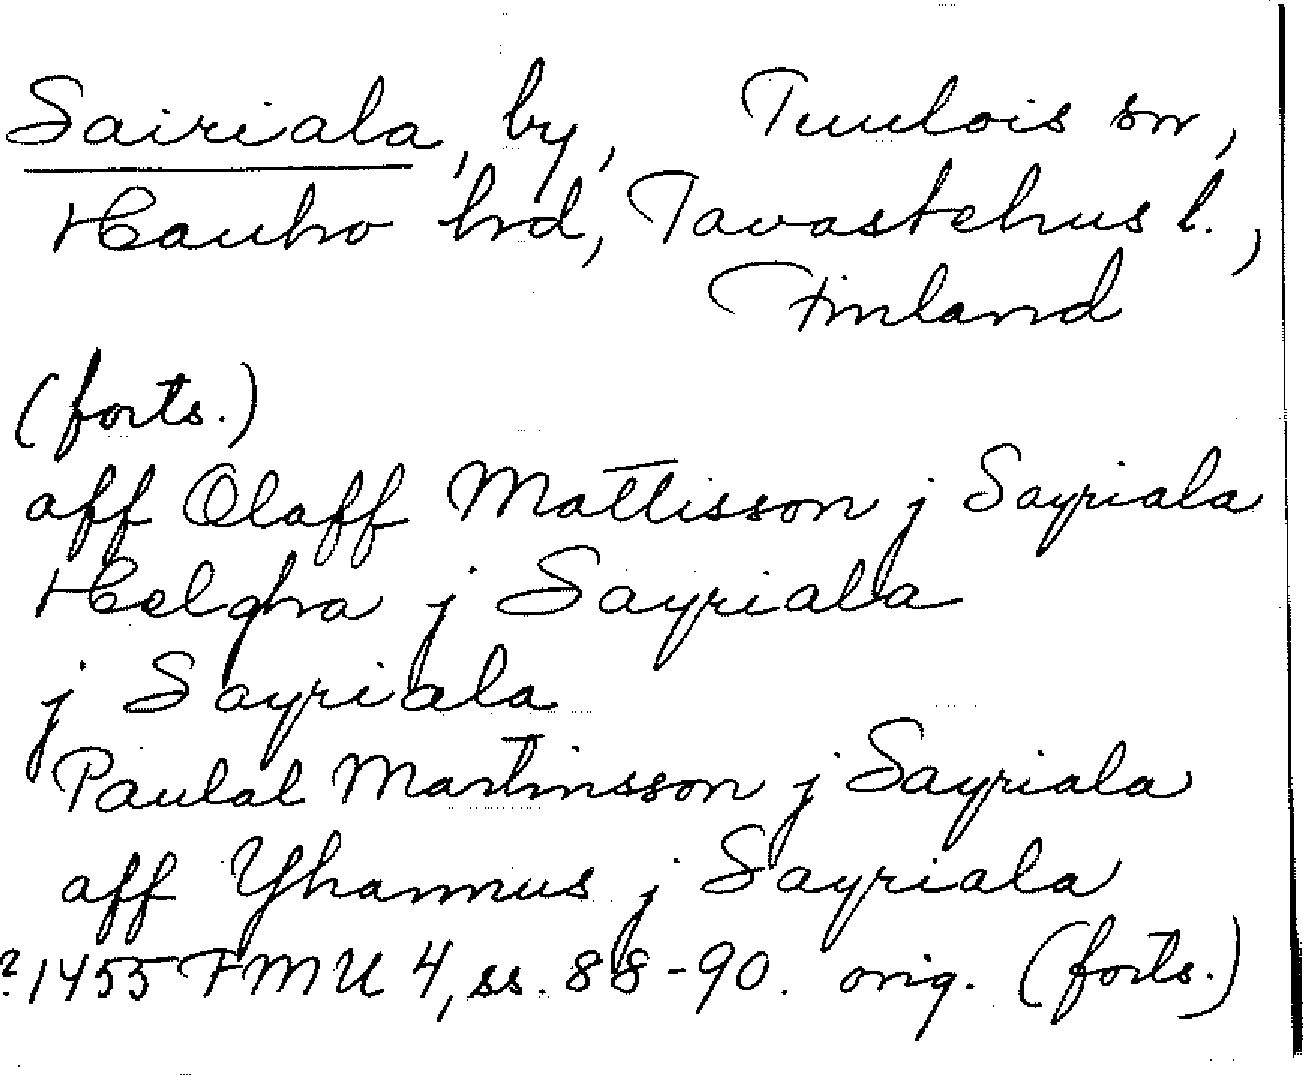 Sairiala, by, Tuulois sn,
Hauho hrd, Tavastehus l.,
Finland
(forts.)
aff Olaff Mattisson j Sayriala
Helgha j Sayriala
j Sayriala
Paulal Martinsson j Sayriala
aff Yhannus j Sayriala
?1455 FMU 4, ss. 88-90. orig. (forts.)